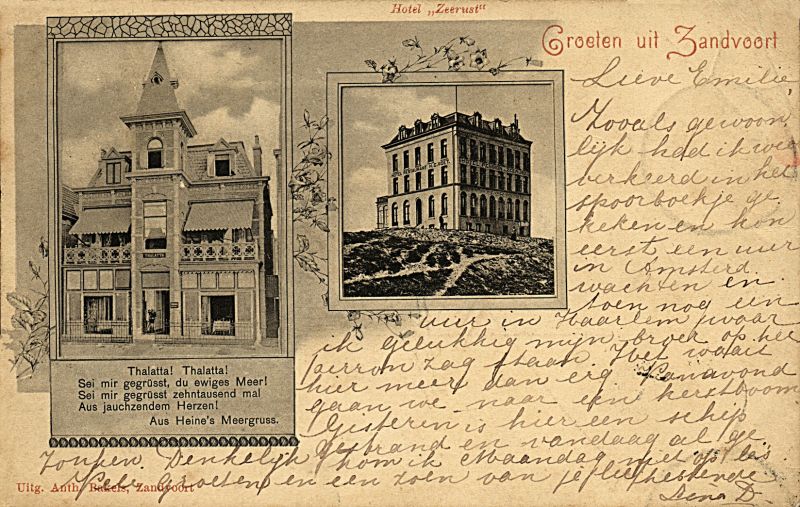 Hotel „Zeerust"
Groeten uit Zandvoort
THALATTA
Thalatta! Thalatta!
Sei mir gegrüsst, du ewiges Meer!
Sei mir gegrüsst zehntausend mal
Aus jauchzendem Herzen!
Aus Heine's Meergruss.
Lieve Emilie,
Zooals gewoon
lijk had ik weer
verkeerd in het
spoorboekje ge
keken en kon
eerst een uur
in Amsterd.
wachten en
toen nog een
uur in Haarlem waar
ik gelukkig mijn broer op het
perron zag staan. Het waait
hier meer dan erg. Vanavond
gaan we naar een kerstboom
Gisteren is hier een schip
gestrand en vandaag al ge
zonken. Denkelijk kom ik Maandag niet op les
Vele groeten en een zoen van je liefhebbende
Lena D.
Uitg. Anth. Bakels, Zandvoort